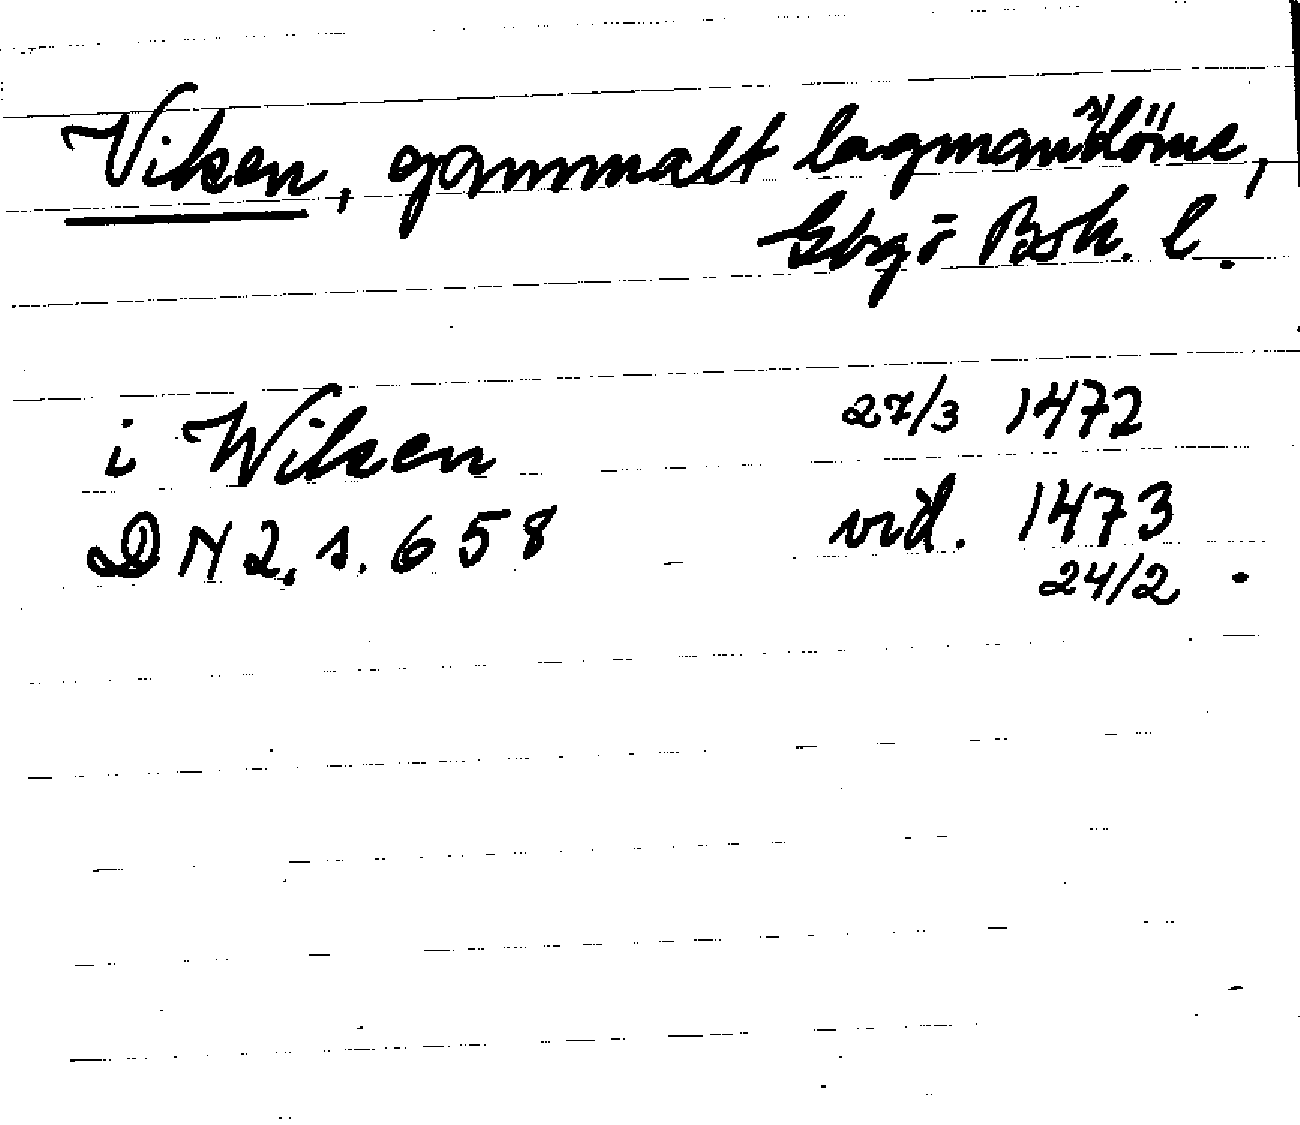 Viken, gammalt lagmansdöme,
Gbgs Boh. l.
i Wiken 27/3 1472
DN 2, s. 658 vid. 1473
24/2 .